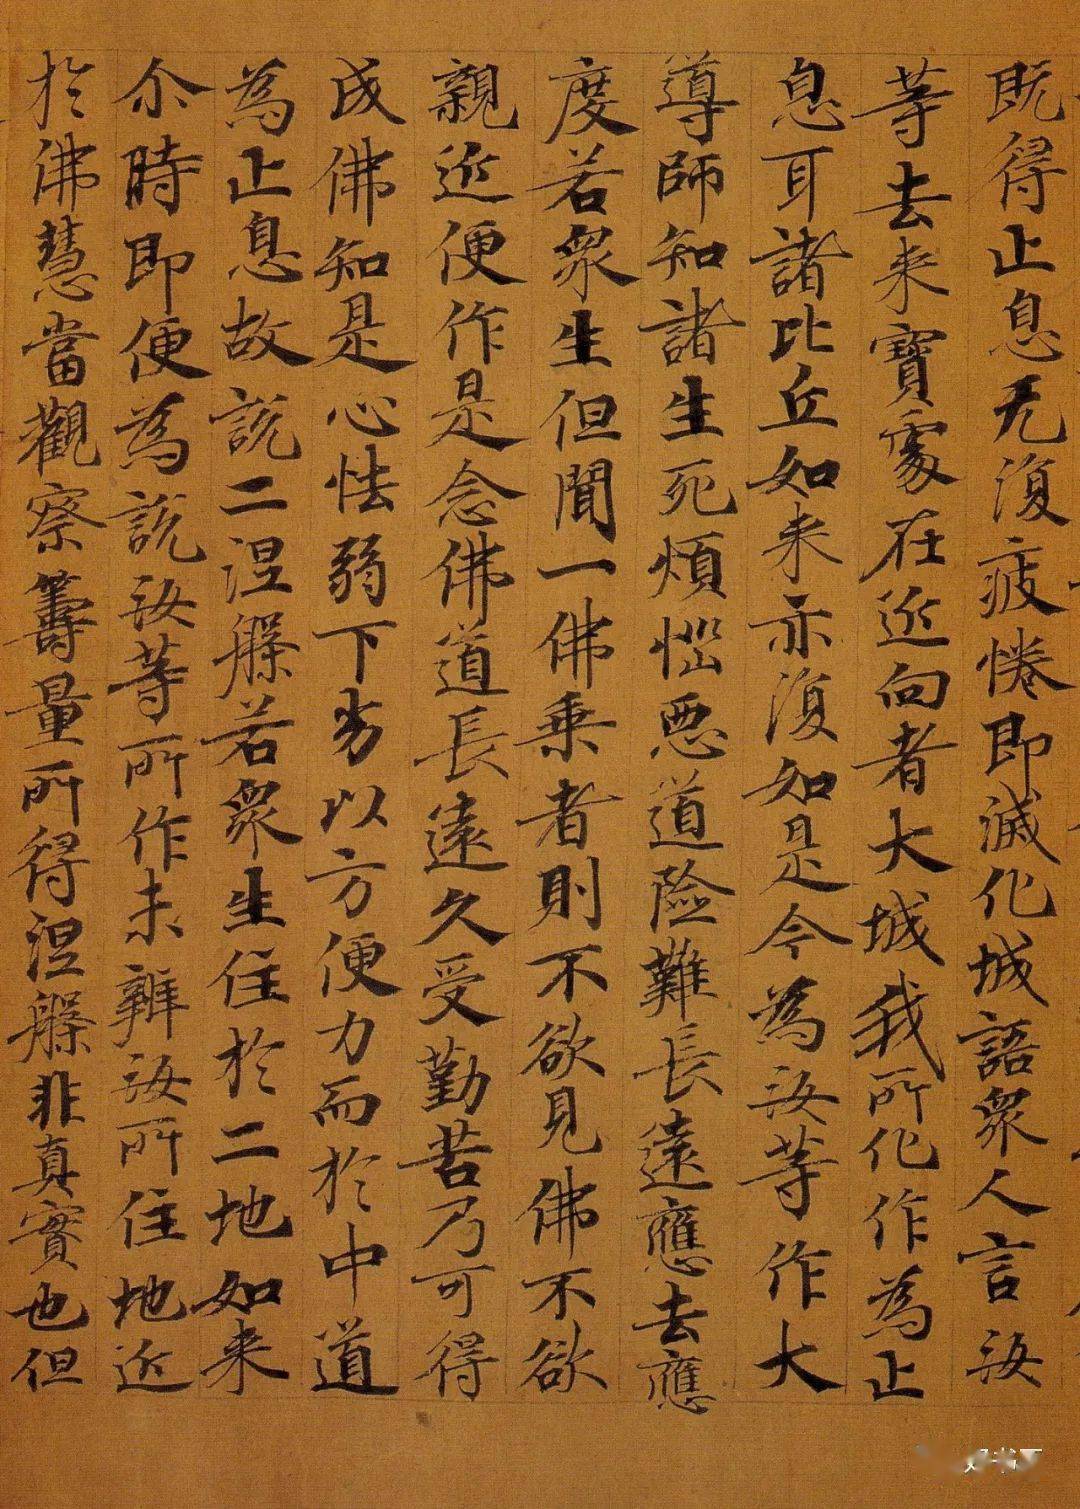 既得止息无復疲惓即滅化城語眾人言汝
等去来寶處在近向者大城我所化作為止
息耳諸比丘如来亦復如是今為汝等作大
導師知諸生死煩惱惡道險難長遠應去應
度若眾生但聞一佛乗者則不欲見佛不欲
親近便作是念佛道長遠久受勤苦乃可得
成佛知是心怯弱下劣以方便力而於中道
為止息故說二涅槃若眾生住於二地如来
尒時即便為說汝等所作未辦汝所住地近
於佛慧當觀察籌量所得涅槃非真實也但